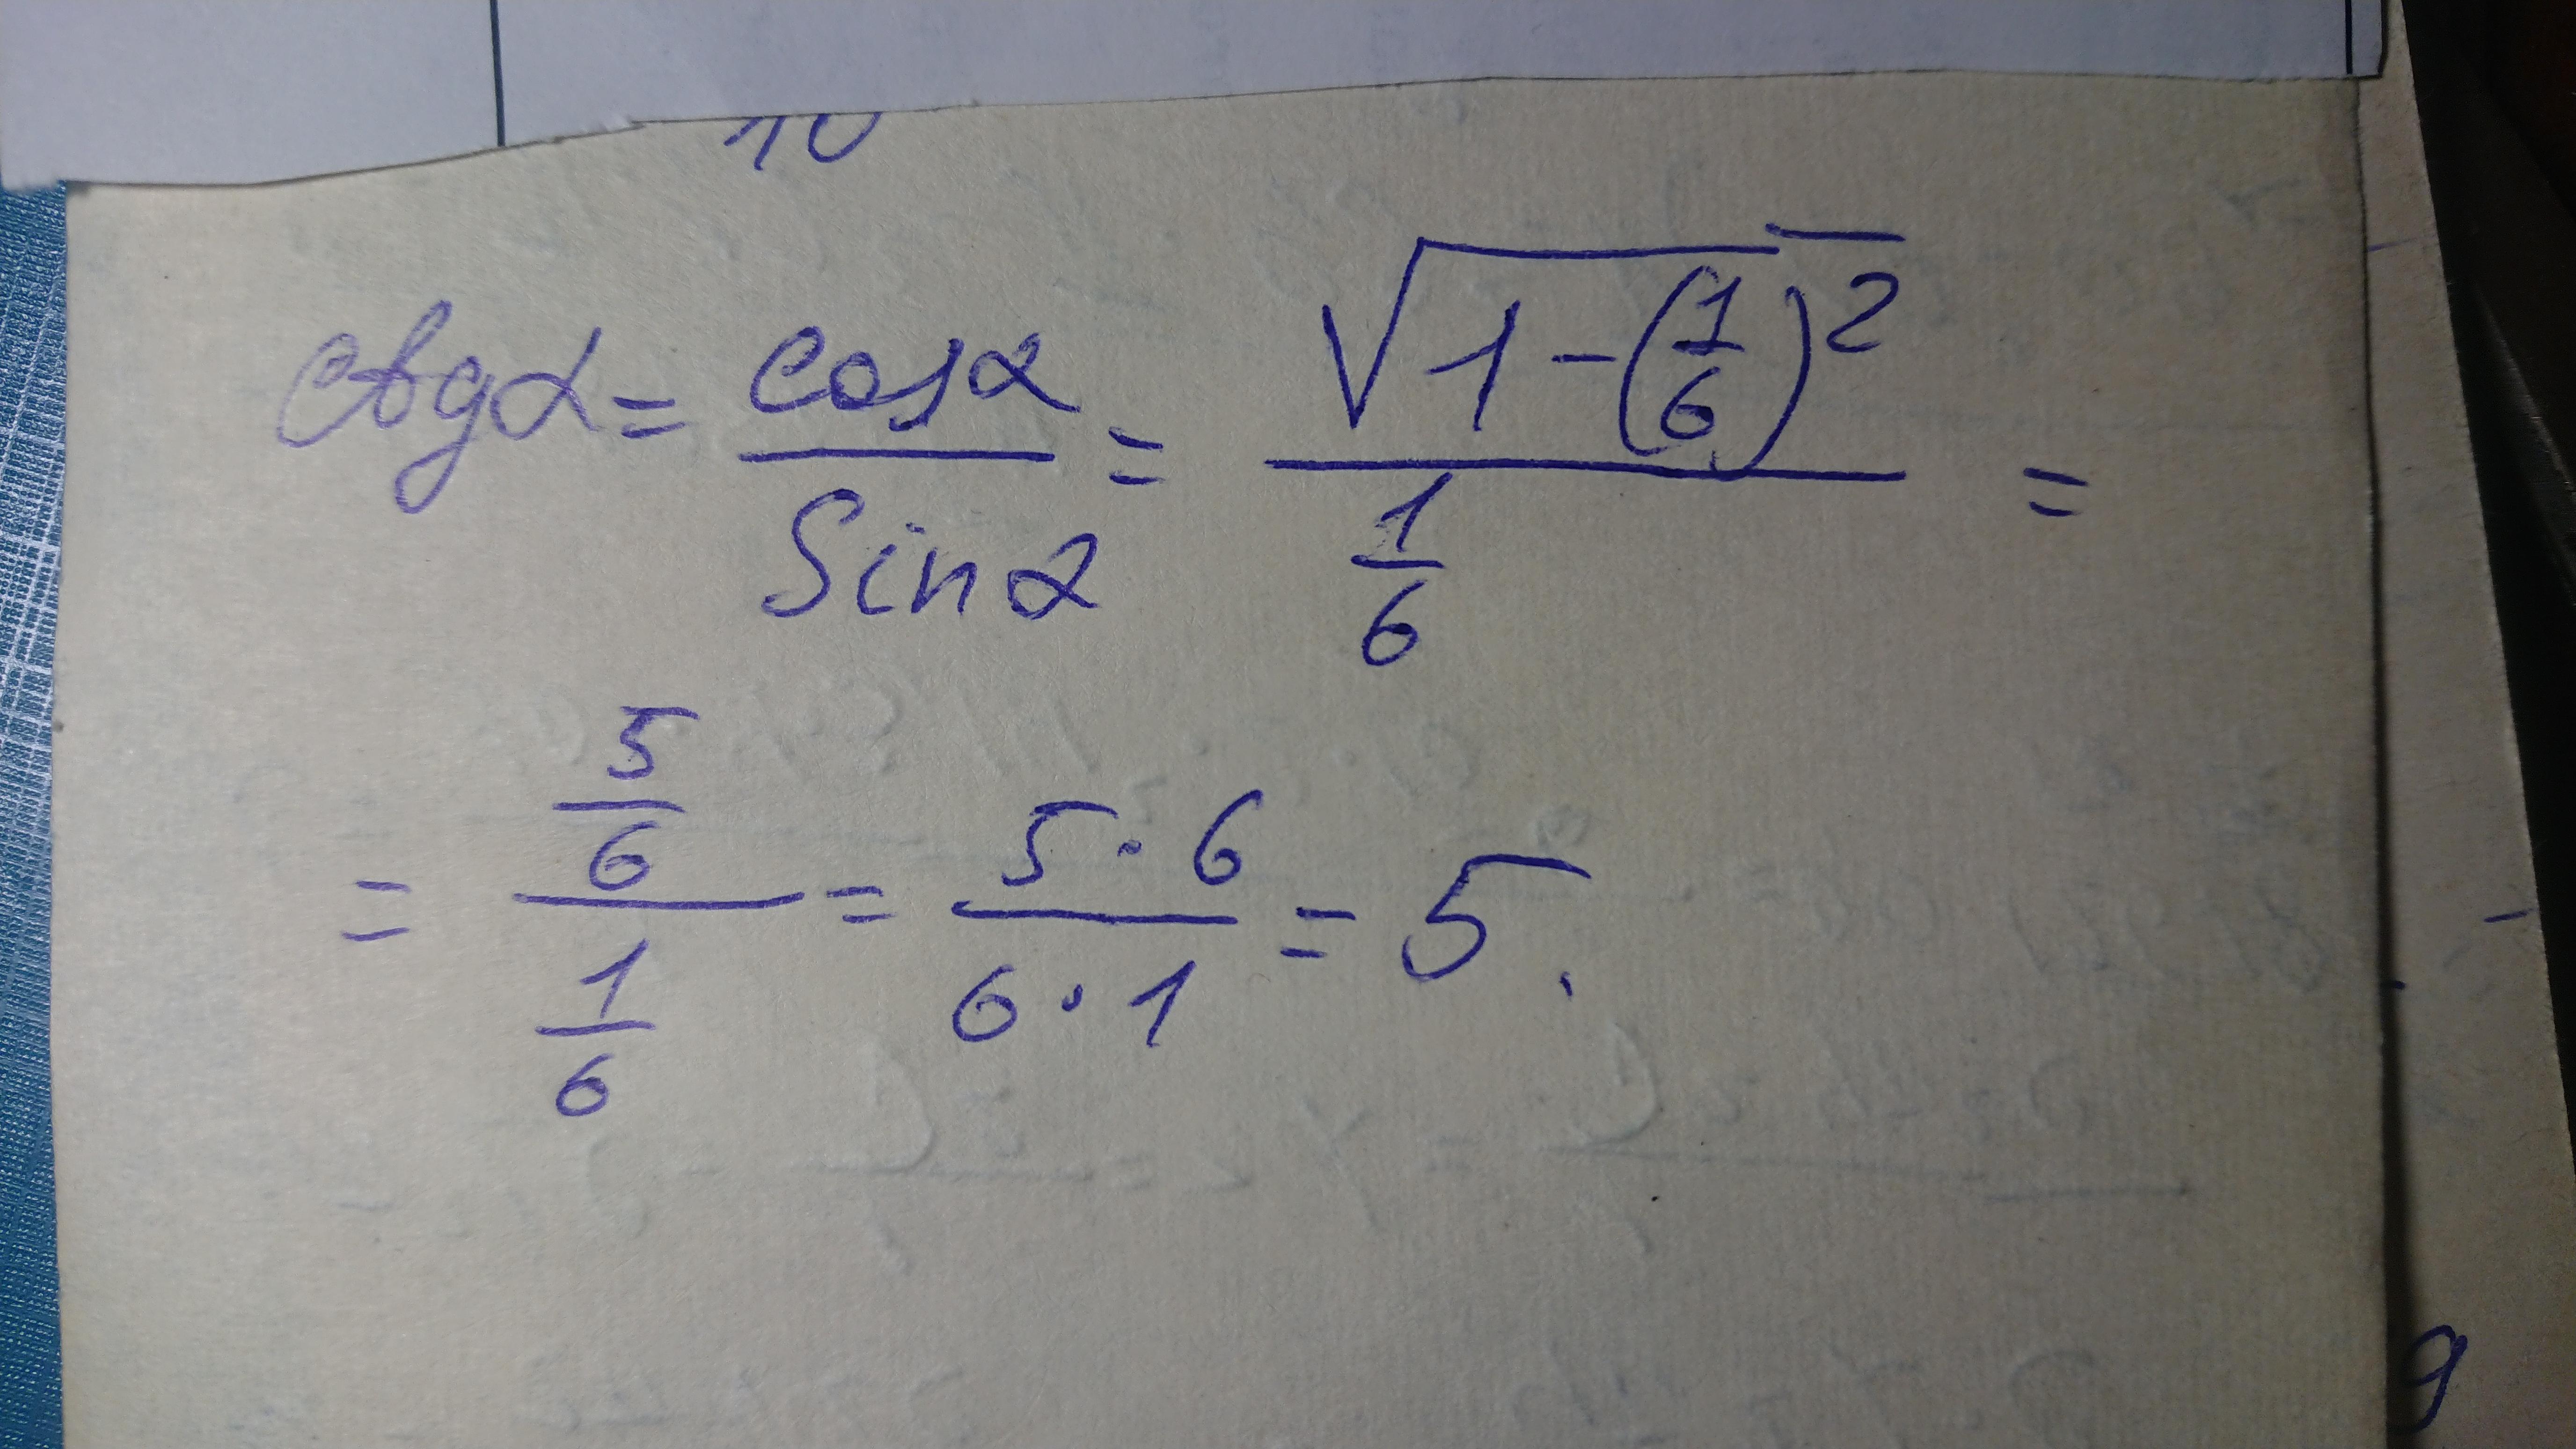 10
ctgα = cosα / sinα = √(1-(1/6)²) / (1/6) =
= (5/6) / (1/6) = (5·6) / (6·1) = 5.
9